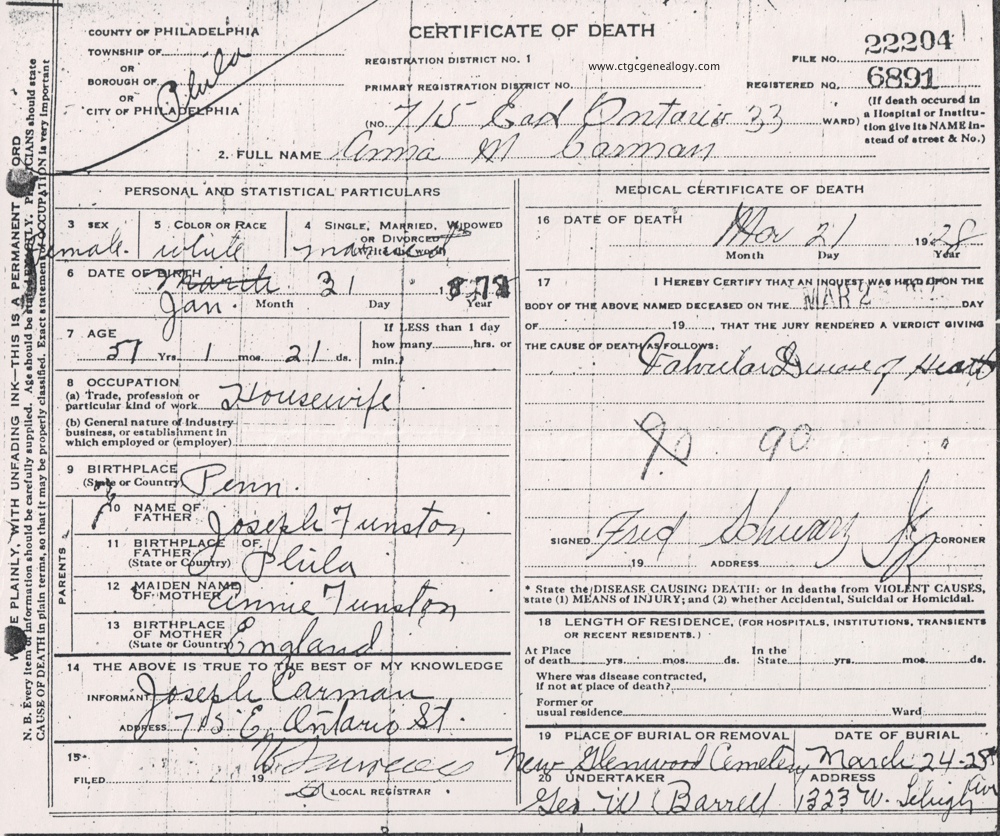 COUNTY OF PHILADELPHIA
TOWNSHIP OF
OR
BOROUGH OF Phila
OR
CITY OF PHILADELPHIA
CERTIFICATE OF DEATH
REGISTRATION DISTRICT NO. 1
www.ctgcgenealogy.com
PRIMARY REGISTRATION DISTRICT NO.
FILE NO. 22204
REGISTERED NO. 6891
(NO. 715 East Ontario 33 WARD)
(If death occured in a Hospital or Institution give its NAME instead of street & No.)
2. FULL NAME Anna M Carman
N. B. Every item of information should be carefully supplied. Age should be stated EXACTLY. PHYSICIANS should state
CAUSE OF DEATH in plain terms, so that it may be properly classified. Exact statement of OCCUPATION is very important
PLAINLY, WITH UNFADING INK—THIS IS A PERMANENT
PERSONAL AND STATISTICAL PARTICULARS
3 SEX
5 COLOR OR RACE
4 SINGLE, MARRIED, WIDOWED
OR DIVORCED
(Write the word)
Female. white married
6 DATE OF BIRTH
March 31 1878
Jan. Month Day Year
7 AGE
57 Yrs 1 mos. 21 ds.
If LESS than 1 day
how many hrs. or
min.
8 OCCUPATION
(a) Trade, profession or
particular kind of work Housewife
(b) General nature of industry
business, or establishment in
which employed or (employer)
9 BIRTHPLACE
(State or Country) Penn.
PARENTS
10 NAME OF
FATHER Joseph Funston
11 BIRTHPLACE OF
FATHER
(State or Country) Phila
12 MAIDEN NAME
OF MOTHER Annie Funston
13 BIRTHPLACE
OF MOTHER
(State or Country) England
14 THE ABOVE IS TRUE TO THE BEST OF MY KNOWLEDGE
INFORMANT Joseph Carman
ADDRESS 715 E. Ontario St.
15
FILED 19
LOCAL REGISTRAR
MEDICAL CERTIFICATE OF DEATH
16 DATE OF DEATH Mar 21 1928
Month Day Year
17 I HEREBY CERTIFY THAT AN INQUEST WAS HELD UPON THE
BODY OF THE ABOVE NAMED DECEASED ON THE MAR 2 DAY
OF 19 , THAT THE JURY RENDERED A VERDICT GIVING
THE CAUSE OF DEATH AS FOLLOWS:
Valvular Disease of Heart
90 90
SIGNED Fred Schwarz Jr CORONER
19 ADDRESS
* State the DISEASE CAUSING DEATH: or in deaths from VIOLENT CAUSES,
state (1) MEANS of INJURY; and (2) whether Accidental, Suicidal or Homicidal.
18 LENGTH OF RESIDENCE, (FOR HOSPITALS, INSTITUTIONS, TRANSIENTS
OR RECENT RESIDENTS.)
At Place
of death yrs. mos. ds.
In the
State yrs. mos. ds.
Where was disease contracted,
if not at place of death?
Former or
usual residence Ward
19 PLACE OF BURIAL OR REMOVAL
New Glenwood Cemetery
DATE OF BURIAL
March 24-28
20 UNDERTAKER
Geo. W Barrell
ADDRESS
1323 W. Lehigh Ave